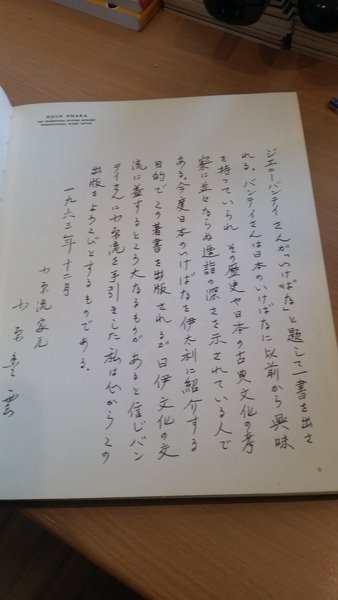 HOUN OHARA
ジェニーバンティさんが「いけばな」と題して一書を出さ
れる。バンティさんは日本のいけばなに以前から興味
を持っていられ その歴史や日本の古典文化の考
察に並々ならぬ造詣の深さを示されている人で
ある。今度日本のいけばなを伊太利に紹介する
目的で この著書を出版されるが日伊文化の交
流に益するところ大なるものがあると信じバン
ティさんに小原流を手引きした私は心からこの
出版をよろこびとするものである。
一九六三年十二月
小原流家元
小原豊雲
9